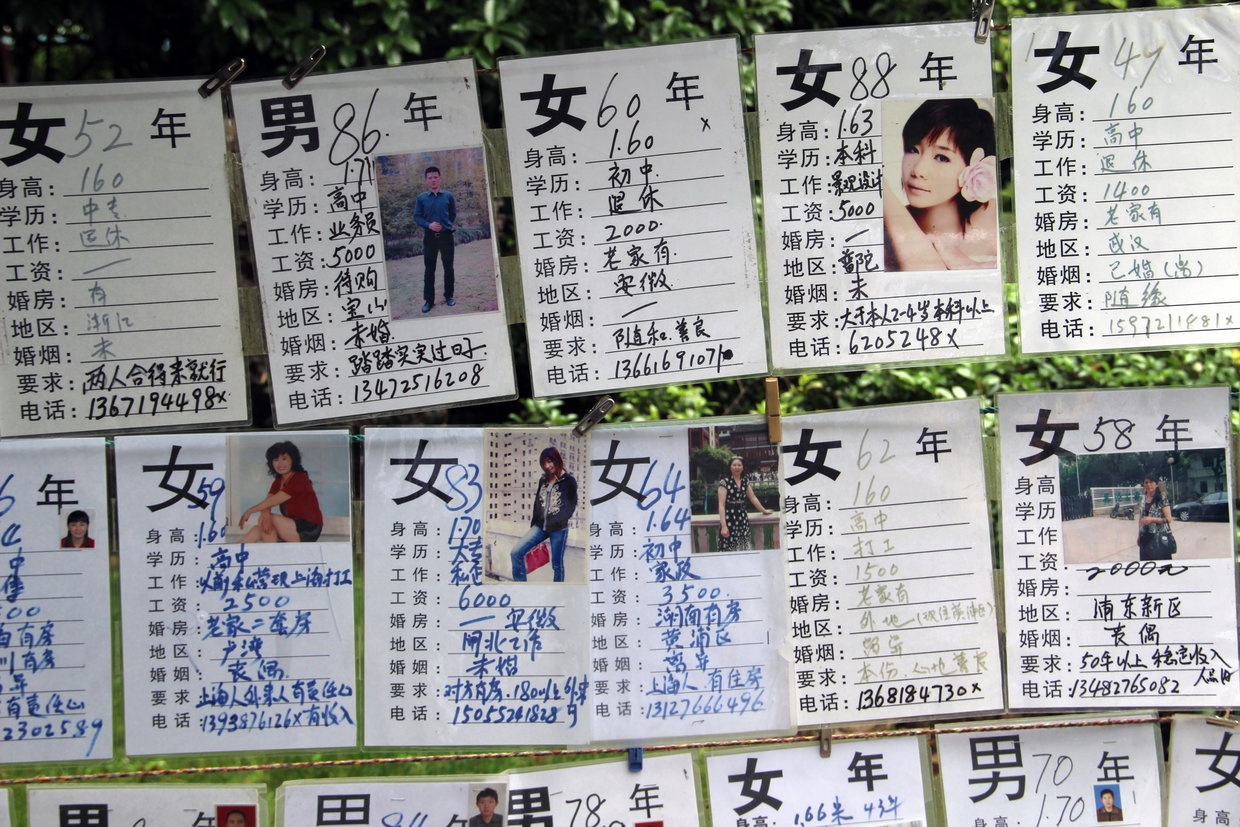 女 52 年
身高: 160
学历: 中专
工作: 退休
工资: 一
婚房: 有
地区: 浙江
婚烟: 未
要求: 两人合得来就行
电话: 1367194498x
男 86 年
身高: 1.71
学历: 高中
工作: 业务员
工资: 5000
婚房: 待购
地区: 宝山
婚烟: 未婚
要求: 踏踏实实过日子
电话: 13472516208
女 60 年
x
身高: 1.60
学历: 初中
工作: 退休
工资: 2000
婚房: 老家有
地区: 安徽
婚烟: 一
要求: 随和.善良
电话: 1366169107
女 88 年
身高: 1.63
学历: 本科
工作: 景观设计
工资: 5000
婚房: 一
地区: 普陀
婚烟: 未
要求: 大于本人2-4岁本科以上
电话: 6205248x
女 47 年
身高: 160
学历: 高中
工作: 退休
工资: 1400
婚房: 老家有
地区: 武汉
婚烟: 已婚(离)
要求: 随缘
电话: 1597211481x
年
中
有房
有房
有责任心
2302589
女 59
身高: 1.60
学历: 高中
工作: 以前私营现上海打工
工资: 2500
婚房: 老家二套房
地区: 卢湾
婚烟: 丧偶
要求: 上海人外来人有责任心
电话: 1393876126x 有收入
女 83
身高: 170
学历: 大专
工作: 私企
工资: 6000
婚房: 一 安徽
地区: 闸北工作
婚姻: 未婚
要求: 对方有房.180以上
电话: 15055241828
女 64
身高: 1.64
学历: 初中
工作: 家政
工资: 3500
婚房: 湖南有房
地区: 黄浦区
婚姻: 离异
要求: 上海人 有住房
电话: 13127666496
女 62 年
身高: 160
学历: 高中
工作: 打工
工资: 1500
婚房: 老家有
地区: 外地
婚烟: 离异
要求: 本份.心地善良
电话: 1368184730x
女 58 年
身高
学历
工作
工资 2000元
婚房:
地区: 浦东新区
婚烟: 丧偶
要求: 50年以上 稳定收入
电话: 13482765082 人品好
男
男
男 78. 年
女 年
1.66米 43年
男 70 年
身高: 1.70
女
身高